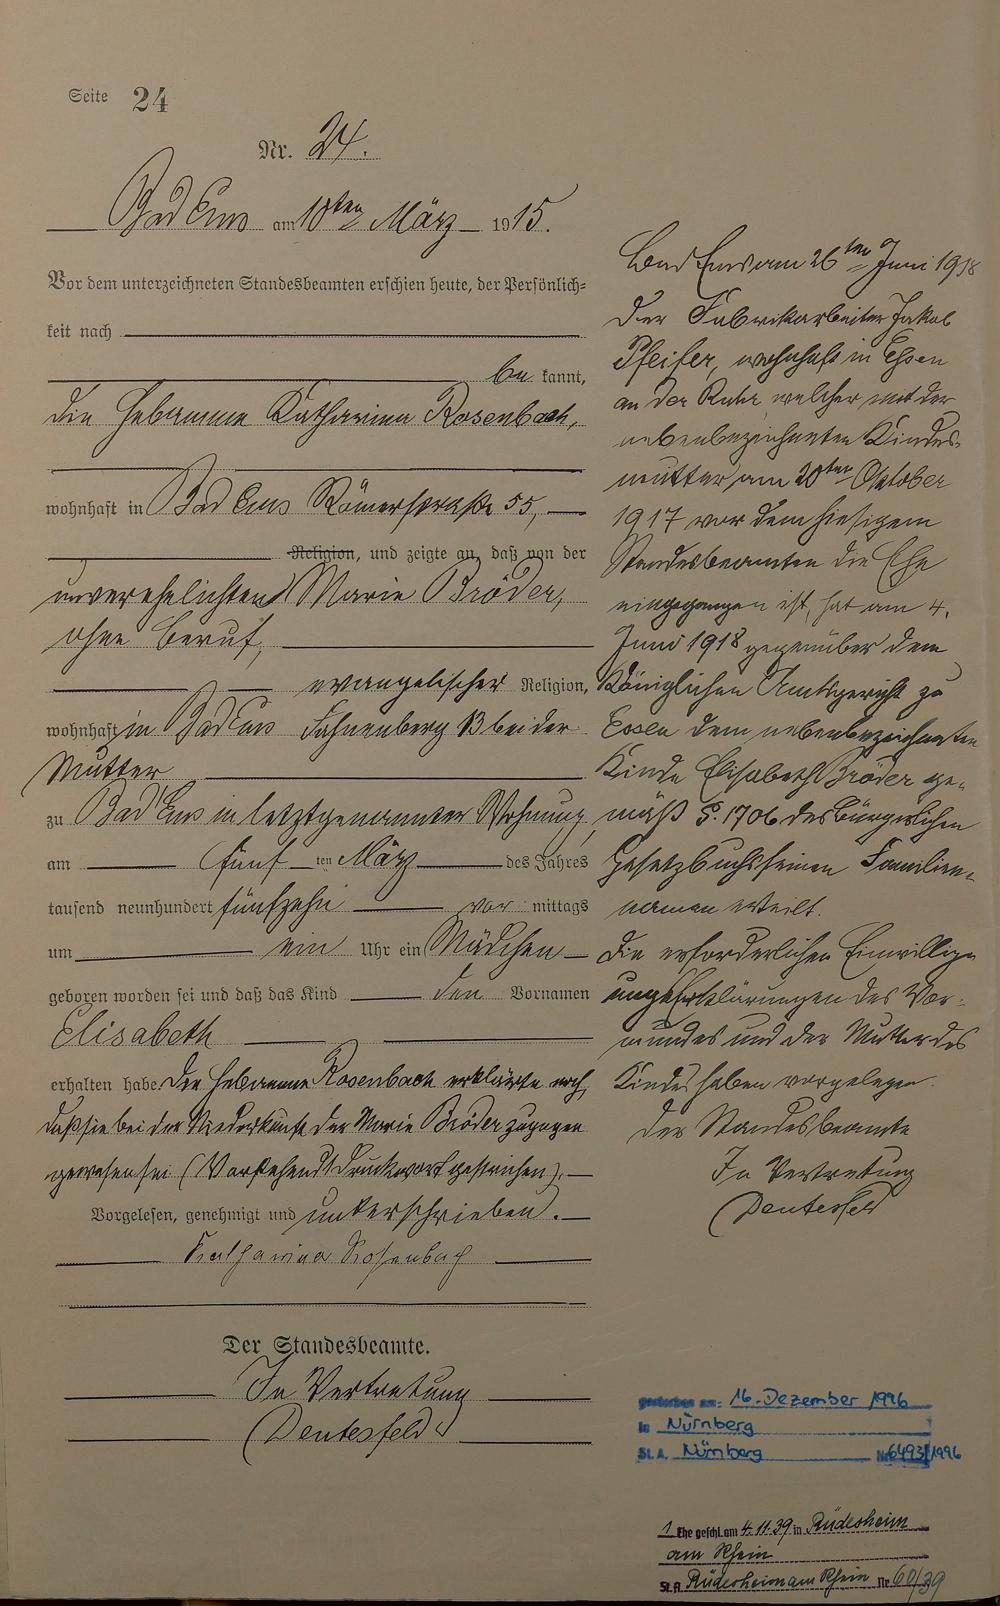 Seite 24
Nr. 24.
Bad Ems am 10ten März 1915.
Vor dem unterzeichneten Standesbeamten erschien heute, der Persönlich=
keit nach
be kannt,
die Hebamme Katharina Rosenbach,
wohnhaft in Bad Ems Römerstraße 55,
Religion, und zeigte an, daß von der
unverehelichten Marie Bröder,
ohne Beruf,
evangelischer Religion,
wohnhaft in Bad Ems Fahnenberg 13 bei der
Mutter
zu Bad Ems in letztgenannter Wohnung,
am fünften März des Jahres
tausend neunhundert fünfzehn vor mittags
um ein Uhr ein Mädchen
geboren worden sei und daß das Kind den Vornamen
Elisabeth
erhalten habe. Die Hebamme Rosenbach erklärte noch,
daß sie bei der Niederkunft der Marie Bröder zugegen
gewesen sei (Vorstehend 1 Druckwort gestrichen).
Vorgelesen, genehmigt und unterschrieben.
Katharina Rosenbach
Der Standesbeamte.
In Vertretung
Deutesfeld
Bad Ems am 26ten Juni 1918
Der Fabrikarbeiter Jakob
Pfeifer, wohnhaft in Essen
an der Ruhr, welcher mit der
nebenbezeichneten Kindes-
mutter am 20ten Oktober
1917 vor dem hiesigen
Standesbeamten die Ehe
eingegangen ist, hat am 4.
Juni 1918 gegenüber dem
Königlichen Amtsgericht zu
Essen dem nebenbezeichneten
Kinde Elisabeth Bröder ge-
mäß §. 1706 des Bürgerlichen
Gesetzbuchs seinen Familien-
namen erteilt.
Die erforderlichen Einwillig-
ungs Erklärungen des Vor-
mundes und der Mutter des
Kindes haben vorgelegen.
Der Standesbeamte
In Vertretung
Deutesfeld
gestorben am: 16. Dezember 1996
in Nürnberg
St. A. Nürnberg Nr. 6493/1996
1. Ehe geschl. am 4.11.39 in Rüdesheim
am Rhein
St. A. Rüdesheim am Rhein Nr. 60/39